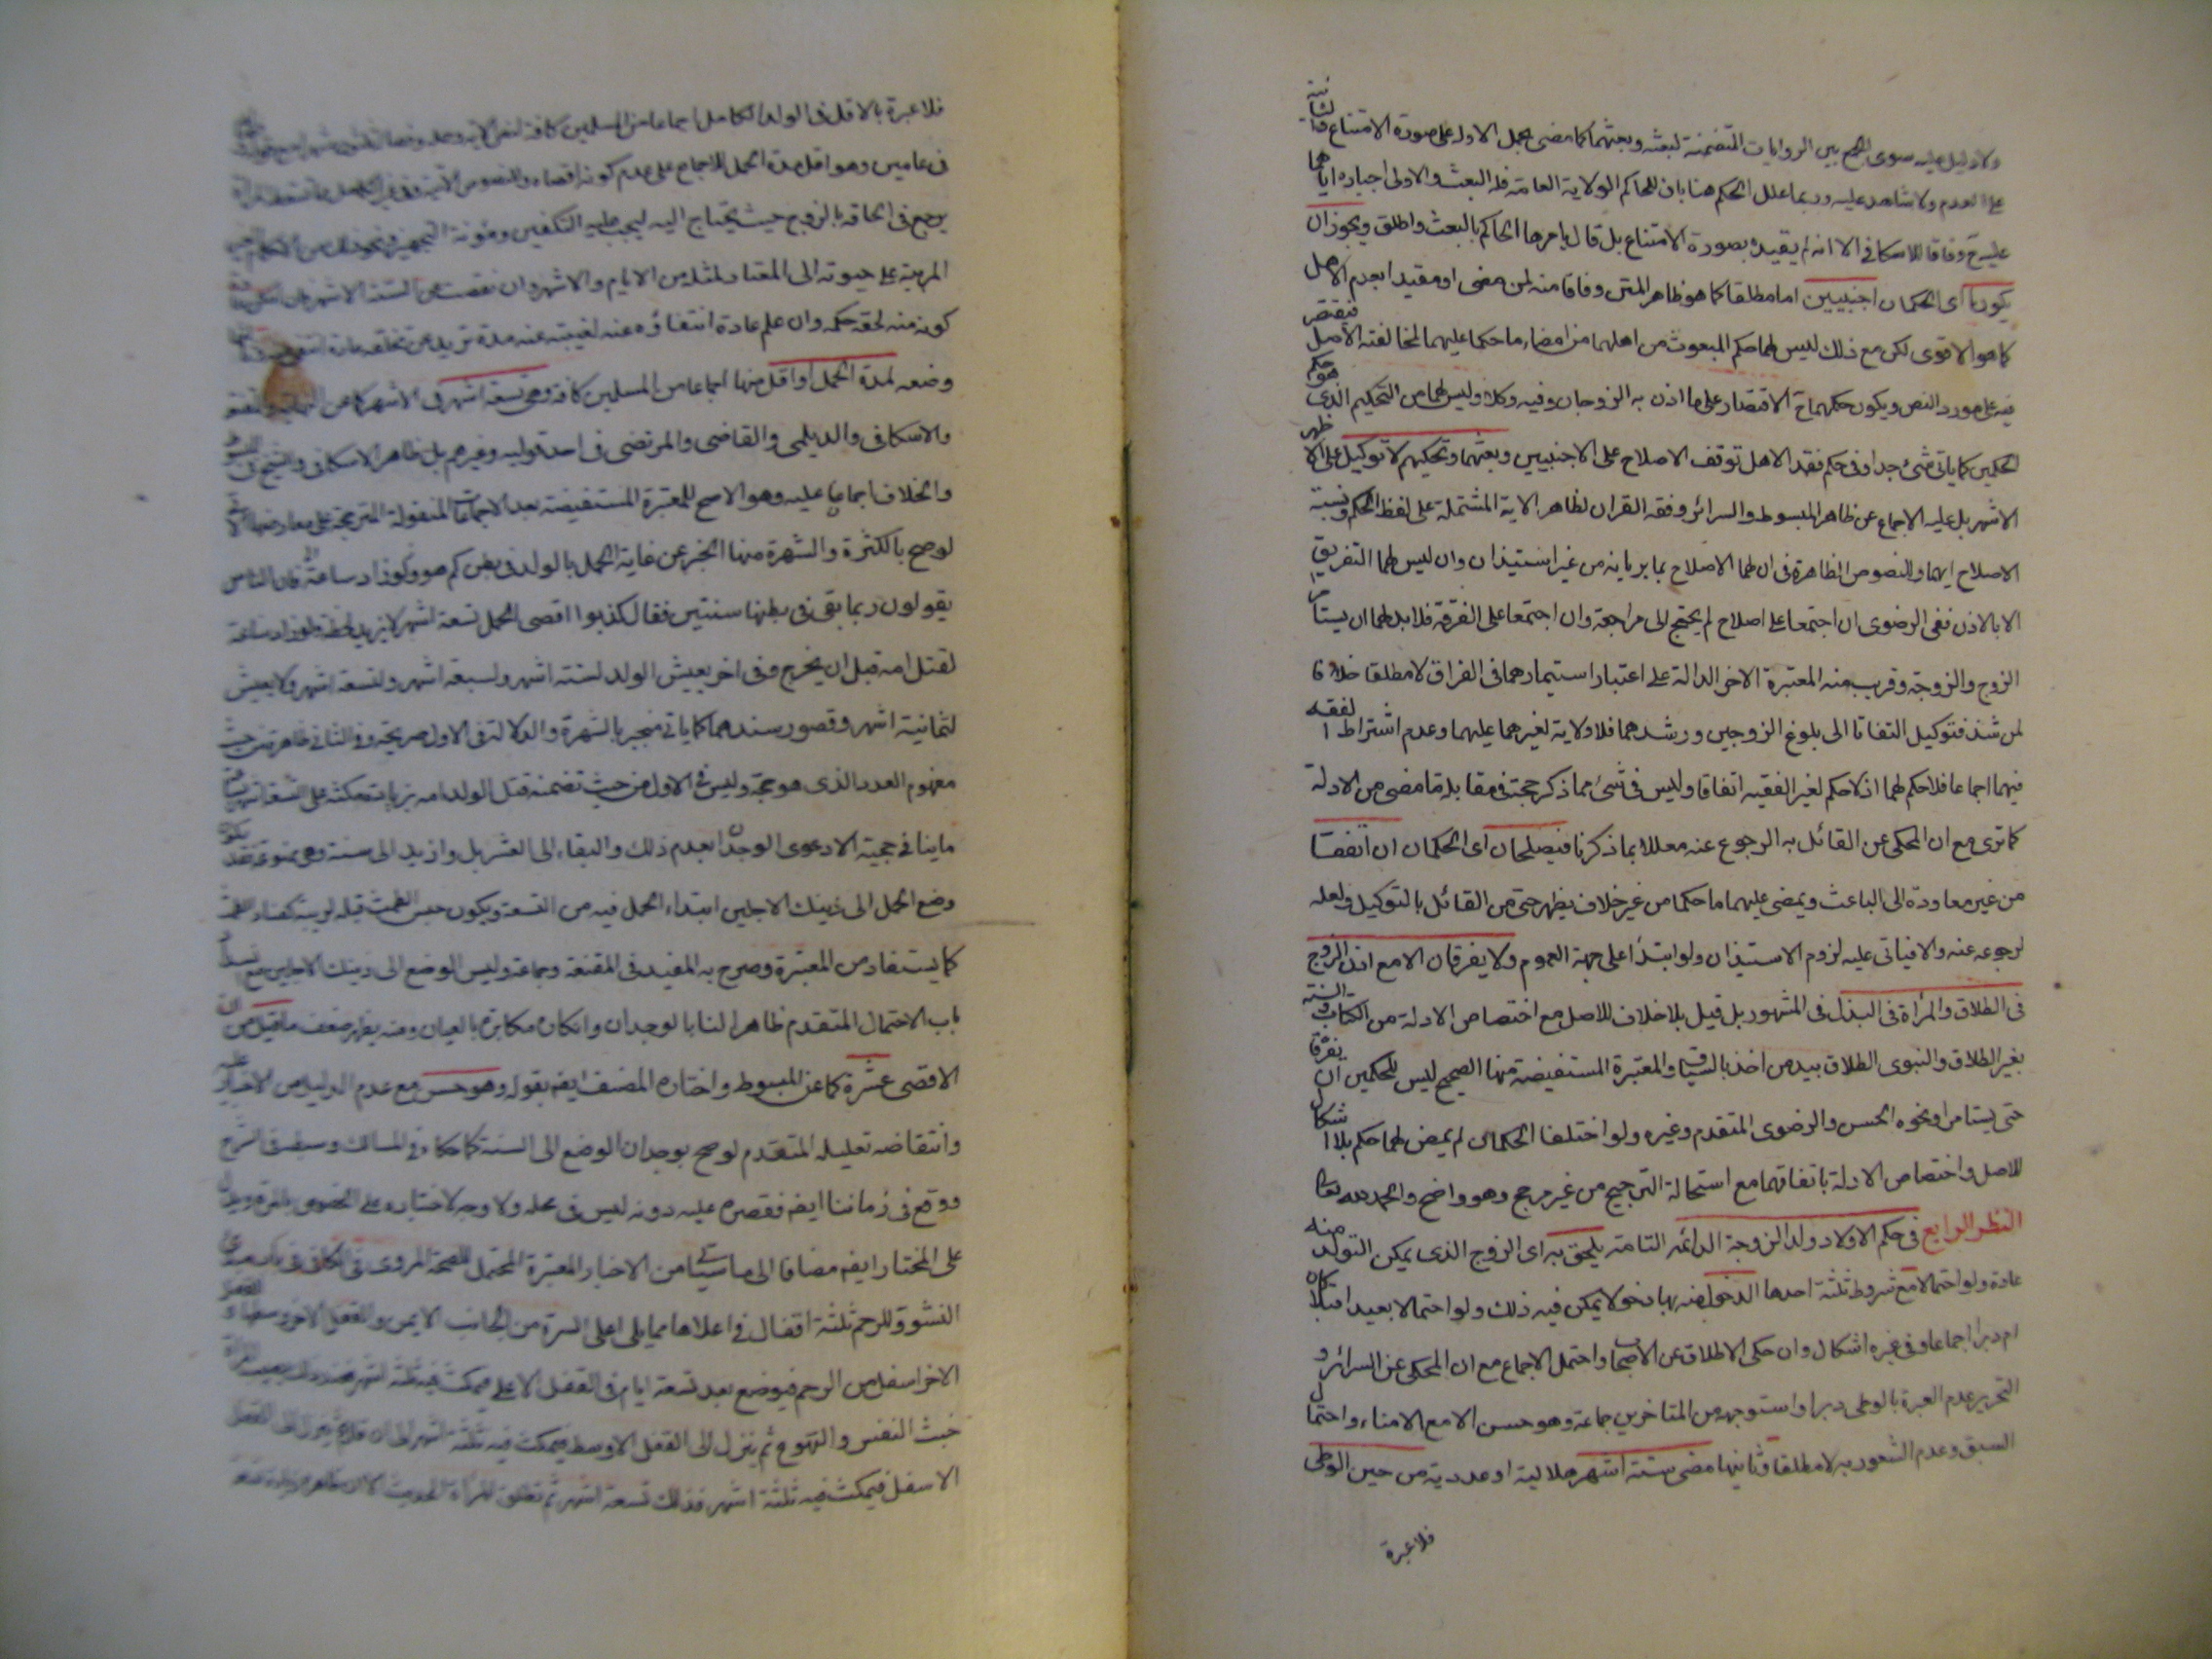 ولا دليل عليه سوى الجمع بين الروايات المتضمنة لبعثه وبعثهما كما مضى بحمل الاولة على صورة الامتناع والثانية
على العدم ولا شاهد عليه وربما علل الحكم هنا بان للحاكم الولاية العامة فله البعث والاولى اجباره اياهما
عليه ح وفاقا للاسكافى الا انه لم يقيده بصورة الامتناع بل قال يامرها الحاكم بالبعث واطلق ويجوز ان
يكونا اى الحكمان اجنبيين اما مطلقا كما هو ظاهر المتن وفاقا منه لمن مضى او مقيدا بعدم الاهل
كما هو الاقوى لكن مع ذلك ليس لهما حكم المبعوث من اهلهما من امضاء ما حكما عليهما لمخالفته الاصل فيقتصر
فيه على مورد النص ويكون حكمهما ح الاقتصار على ما اذن به الزوجان وفيه وكلا وليس لهما من التحكيم الذى هو حكم
الحكمين كما ياتى شئ جدا وفى حكم فقد الاهل توقف الاصلاح على الاجنبيين وبعثهما وتحكيم لا توكيل على الاظهر
الاشهر بل عليه الاجماع عن ظاهر المبسوط والسرائر وفقه القران لظاهر الاية المشتملة على لفظ الحكم ونسبة
الاصلاح اليهما وللنصوص الظاهرة فى ان لهما الاصلاح بما يريانه من غير استيذان وان ليس لهما التفريق
الا بالاذن ففى الرضوى ان اجتمعا على اصلاح لم يحتج الى مراجعة وان اجتمعا على الفرقة فلا بد لهما ان يستامرا
الزوج والزوجة وقريب منه المعتبرة الاخر الدالة على اعتبار استيمارهما فى الفراق لا مطلقا خلافا
لمن شذ فتوكيل التفاتا الى بلوغ الزوجين ورشدهما فلا ولاية لغيرهما عليهما وعدم اشتراط الفقه
فيهما اجماعا فلا حكم لهما اذ لا حكم لغير الفقيه اتفاقا وليس فى شئ مما ذكر حجة فى مقابلة ما مضى من الادلة
كما ترى مع ان المحكى عن القائل به الرجوع عنه معللا بما ذكرنا فيصلحان اى الحكمان ان اتفقا
من غير معاودة الى الباعث ويمضى عليهما ما حكما من غير خلاف يظهر حتى من القائل بالتوكيل ولعله
لرجوعه عنه والا فياتى عليه لزوم الاستيذان ولو ابتداً على جهة العموم ولا يفرقان الا مع اذن الزوج
فى الطلاق والمرأة فى البذل فى المشهور بل قيل بلا خلاف للاصل مع اختصاص الادلة من الكتاب والسنة
بغير الطلاق والنبوى الطلاق بيد من اخذ بالساق والمعتبرة المستفيضة منها الصحيح ليس للحكمين ان يفرقا
حتى يستامرا ونحوه الحسن والرضوى المتقدم وغيره ولو اختلفا الحكمان لم يمض لهما حكم بلا اشكال
للاصل واختصاص الادلة باتفاقهما مع استحالة الترجيح من غير مرجح وهو واضح والحمد لله تعالى
النظر الرابع فى حكم الاولاد ولد الزوجة الدائمة التامة يلحق به اى الزوج الذى يمكن التولد منه
عادة ولو احتمالا مع شروط ثلثة احدها الدخول منه بها دخولا يمكن فيه ذلك ولو احتمالا بعيدا قبلا كان
ام دبرا اجماعا وفى غيره اشكال وان حكى الاطلاق عن الاصحاب واحتمل الاجماع مع ان المحكى عن السرائر و
التحرير عدم العبرة بالوطى دبرا واستوجهه من المتاخرين جماعة وهو حسن الا مع الامناء واحتمال
السبق وعدم الشعور به لا مطلقا وثانيها مضى ستة اشهر هلالية او عددية من حين الوطى
فلا عبرة
فلا عبرة بالاقل فى الولد الكامل اجماعا من المسلمين كافة لنص الاية وحمله وفصاله ثلثون شهرا مع
فى عامين وهو اقل مدة الحمل للاجماع على عدم كونه اقصاه وللنصوص الاتية وفى غير الكامل
يرجع فى الحاقه بالزوج حيث يحتاج اليه ليجب عليه التكفين ومؤنة التجهيز ونحو ذلك من الاحكام الغير
المرتبة على حيوته الى المعتاد لمثله من الايام والاشهر وان نقصت عن الستة الاشهر فان امكن
كونه منه لحقه حكمه وان علم عادة انتفاؤه عنه لغيبته عنه مدة تزيد عن تخلقه عادة انتفى عنه
وضعه لمدة الحمل او اقل منها اجماعا من المسلمين كافة وهى تسعة اشهر فى الاشهر كما عن
والاسكافى والديلمى والقاضى والمرتضى فى احد قوليه وغيرهم بل ظاهر الاسكافى والشيخ فى
والخلاف اجماعنا عليه وهو الاصح للمعتبرة المستفيضة بعد الاجماعات المنقولة المترجحة على معارضها
لو صح بالكثرة والشهرة منها الخبر عن غاية الحمل بالولد فى بطن امه كم هو فان الناس
يقولون ربما بقى فى بطنها سنتين فقال كذبوا اقصى الحمل تسعة اشهر لا يزيد لحظة ولو زاد ساعة
لقتل امه قبل ان يخرج وفى اخر يعيش الولد لستة اشهر ولسبعة اشهر ولتسعة اشهر ولا يعيش
لثمانية اشهر وقصور سندهما كما ياتى منجبر بالشهرة والدلالة فى الاول صريحة وفى الثانى ظاهرة من حيث
مفهوم العدد الذى هو حجة وليس فى الاول من حيث تضمنه قتل الولد امه بزيادة مكثه على التسعة
ما ينافى حجيته الا دعوى الوجدان بعدم ذلك والبقاء الى العشر بل وازيد الى سنة وهى ممنوعة فقد يكون
وضع الحمل الى ذينك الاجلين ابتداء الحمل فيه من التسعة ويكون حبس الطمث قبله لريبة كفساد الطمث
كما يستفاد من المعتبرة وصرح به المفيد فى المقنعة وجماعة وليس الوضع الى ذينك الاجلين مع
باب الاحتمال المتقدم ظاهرا لنا بالوجدان وانكاره مكابرة بالعيان ومنه يظهر ضعف ما قيل من ان
الاقصى عشرة كما عن المبسوط واختاره المصنف ايضا بقوله وهو حسن مع عدم الدليل من الاخبار عليه
وانتقاضه تعليله المتقدم لو صح بوجدان الوضع الى السنة كما حكاه فى المسالك وسبطه فى الشرح
ووقع فى زماننا ايضا فقصره عليه دونه ليس فى محله ولا وجه لاختياره على الخصوص
على المختار ايضا مضافا الى ما سياتى من الاخبار المعتبرة المحتمل للصحة المروى فى الكافى فى باب
النشوء وللرحم ثلثة اقفال فى اعلاها مما يلى اعلى السرة من الجانب الايمن والقفل الاخر وسطها والقفل
الاخر اسفل من الرحم فيوضع بعد تسعة ايام فى القفل الاعلى فيمكث فيه ثلثة اشهر فعند ذلك يصيب المرأة
خبث النفس والتهوع ثم ينزل الى القفل الاوسط فيمكث فيه ثلثة اشهر الى ان قال ثم ينزل الى القفل
الاسفل فيمكث فيه ثلثة اشهر فذلك تسعة اشهر ثم تطلق المرأة الحديث